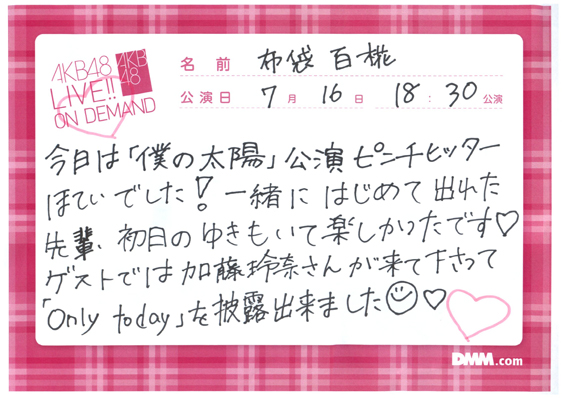 AKB48
LIVE!!
ON DEMAND
AKB
48
名前 布袋百椛
公演日 7月16日 18:30公演
今日は「僕の太陽」公演ピンチヒッター
ほてぃでした! 一緒にはじめて出れた
先輩、初日のゆきもいて楽しかったです♡
ゲストでは加藤玲奈さんが来て下さって
「Only today」を披露出来ました☺♡
DMM.com